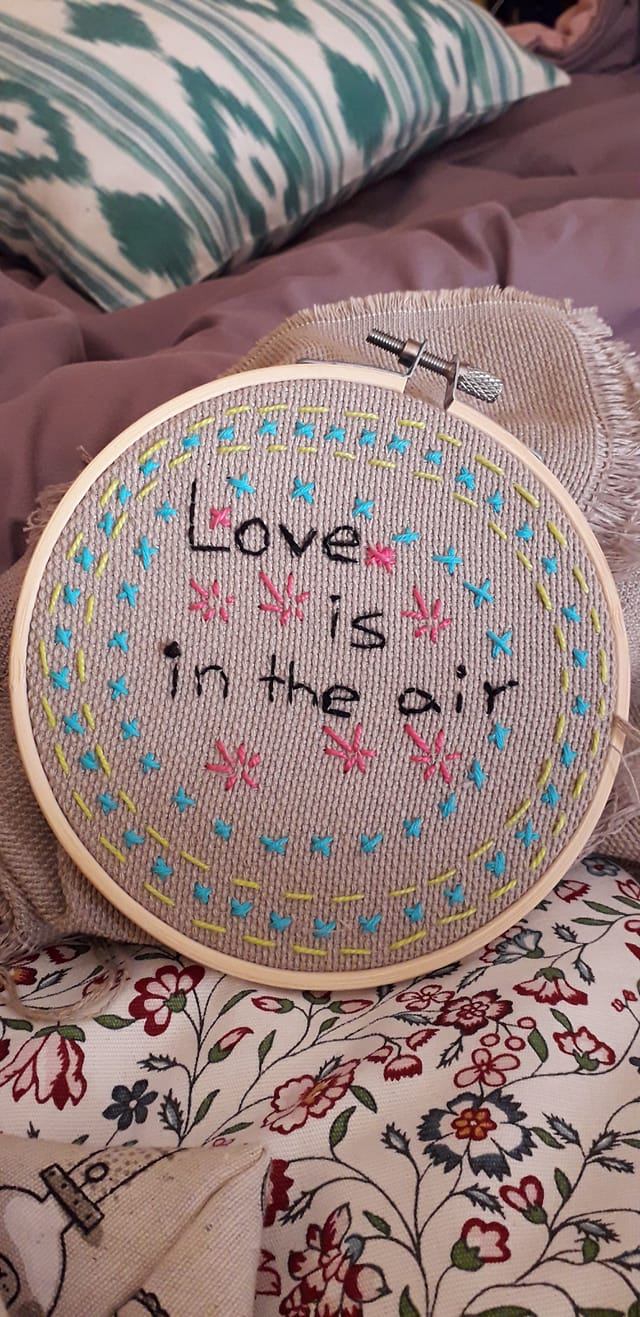 Love
is
in the air